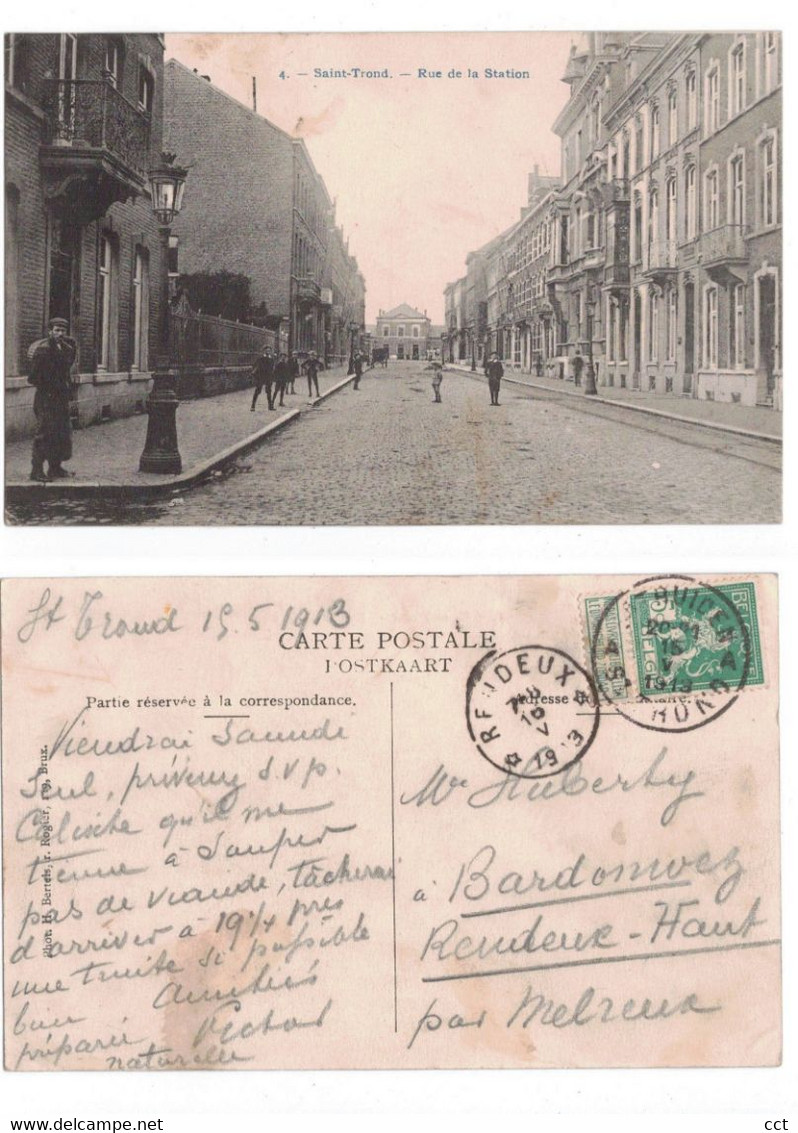 4. — Saint-Trond. — Rue de la Station
St Trond 15.5 1913
CARTE POSTALE
POSTKAART
Partie réservée à la correspondance.
Adresse
Phot. H. Bertels, r. Rogier, 179, Brux.
Viendrai Samedi
Seul, prévenez S.V.P.
Calische qu'il me
tienne à Souper
pas de viande, tâcherai
d'arriver à 19 1/4 près
une truite si possible
bien Amitiés
préparée Victor
naturelle
RENDEUX
15
V
1913
BRUIDEN
ST TROND
15
V
1913
BELGI
Mr Huberty
à Bardonwez
Rendeux-Haut
par Melreux
cct